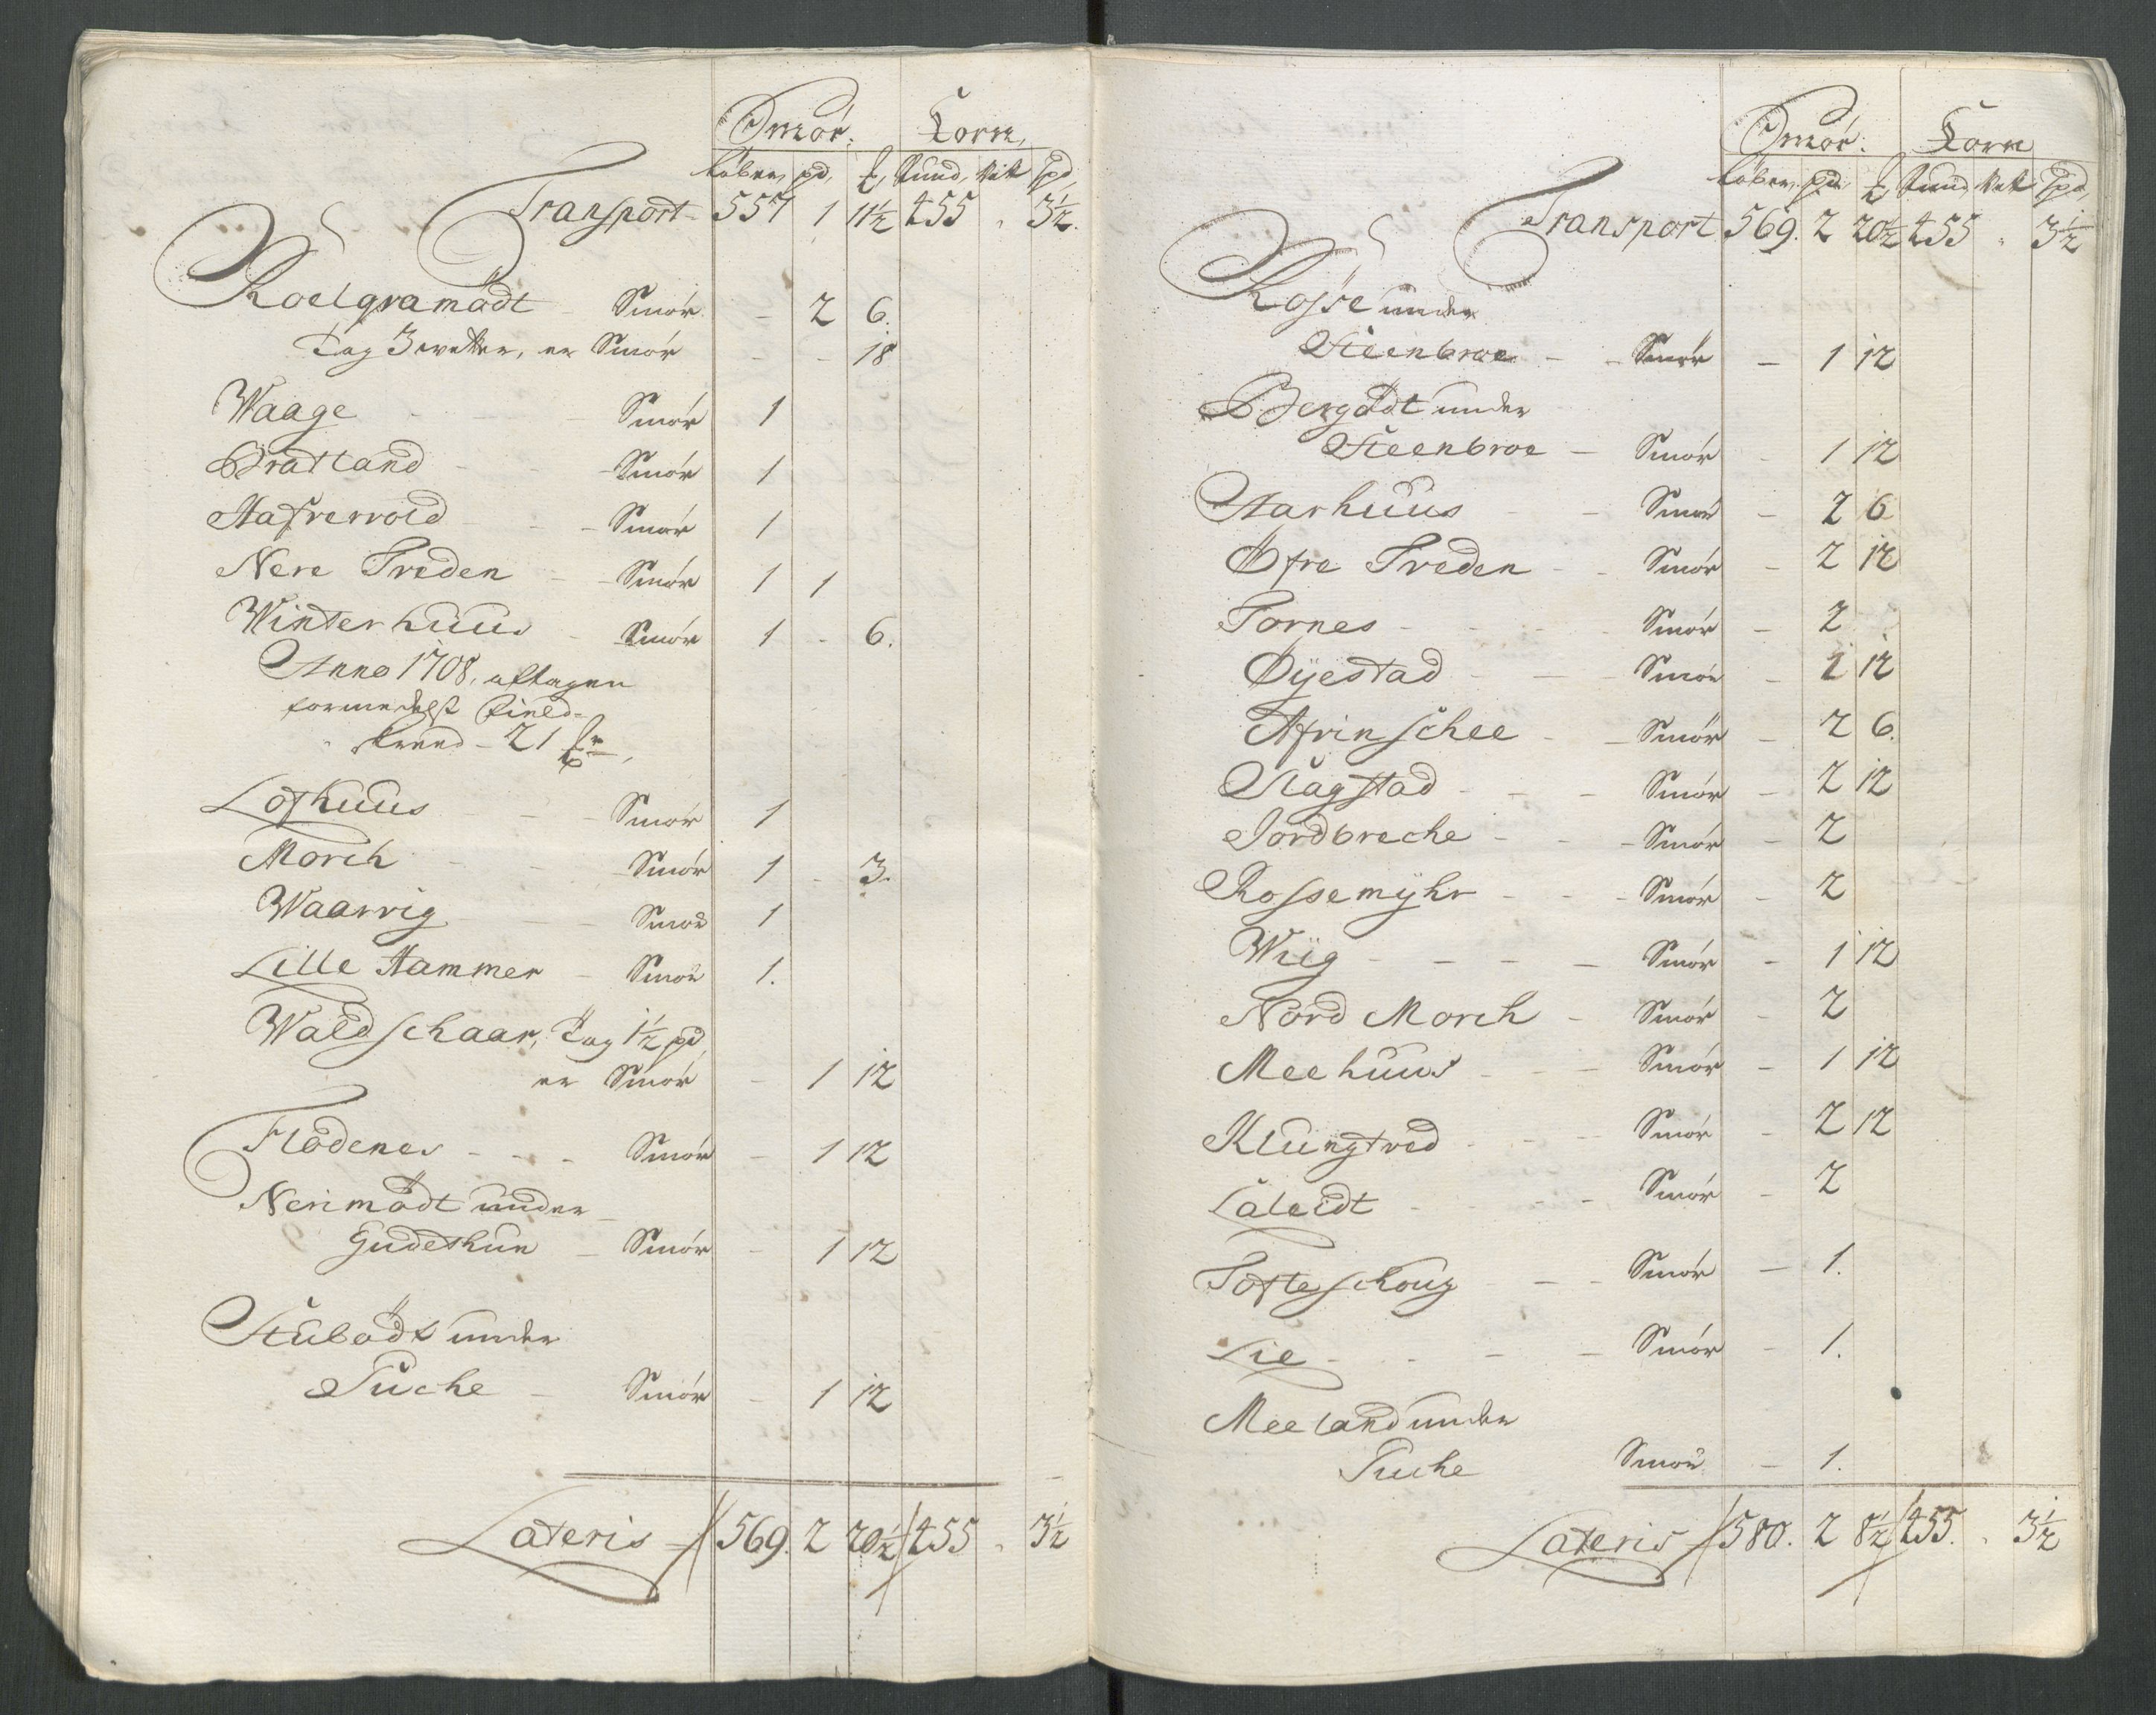 Smör. Korn,
Løber, pd, ℔, Tund, Wett Spd,
Transport 557 1 11½ 455 " 3½.
Roelgramødt Smör. - 2 6.
Tag 3 wetter, er Smör - - 18
Waage - Smör 1
Bratland - Smör 1
Hafrevold - - Smör 1
Nere Treden - Smör 1 1
Winterhuus - Smör 1 - 6.
Anno 1708, aftagen
formedelst
21 ℔r,
Lofthuus - - Smör 1
Morch - - Smör 1 - 3.
Waarvig - Smör 1
Lille Hammer - Smör 1.
Waldschaar, Tag 1½ pd,
er Smör - 1 12
Flødenes - - - Smör - 1 12
Nerimødt under
Gudethun - Smör - 1 12
Stubødt under
Tuche - Smör - 1 12
Lateris 569. 2 20½ 455 " 3½
Smör. Korn
Løber, pd, ℔, Tund, Wett Spd,
Transport 569. 2 20½ 455 " 3½
Rosse under
Steenbroe - - Smör - 1 12
Bergødt under
Steenbroe - Smör - 1 12
Aarhuus - - Smör - 2 6
Øfre Treden - - Smör - 2 12
Tornes - - - - Smör - 2
Øÿestad - - - Smör - 1 12
Afrinschee - - Smör - 2 6.
Stagstad - - - Smör - 2 12
Jordbreche - - - Smör - 2
Rossemÿhr - - - Smör - 2
Wiig - - - - Smör - 1 12
Nord Morch - Smör - 2
Meehuus - - - Smör - 1 12
Klungtved - - - Smör - 2 12
Laleidt - - - - Smör - 2
Tofteschoug - - - Smör - 1.
Lie - - - - Smör - 1.
Meeland under
Tuche Smör - 1.
Lateris 580. 2 8½ 455. " 3½